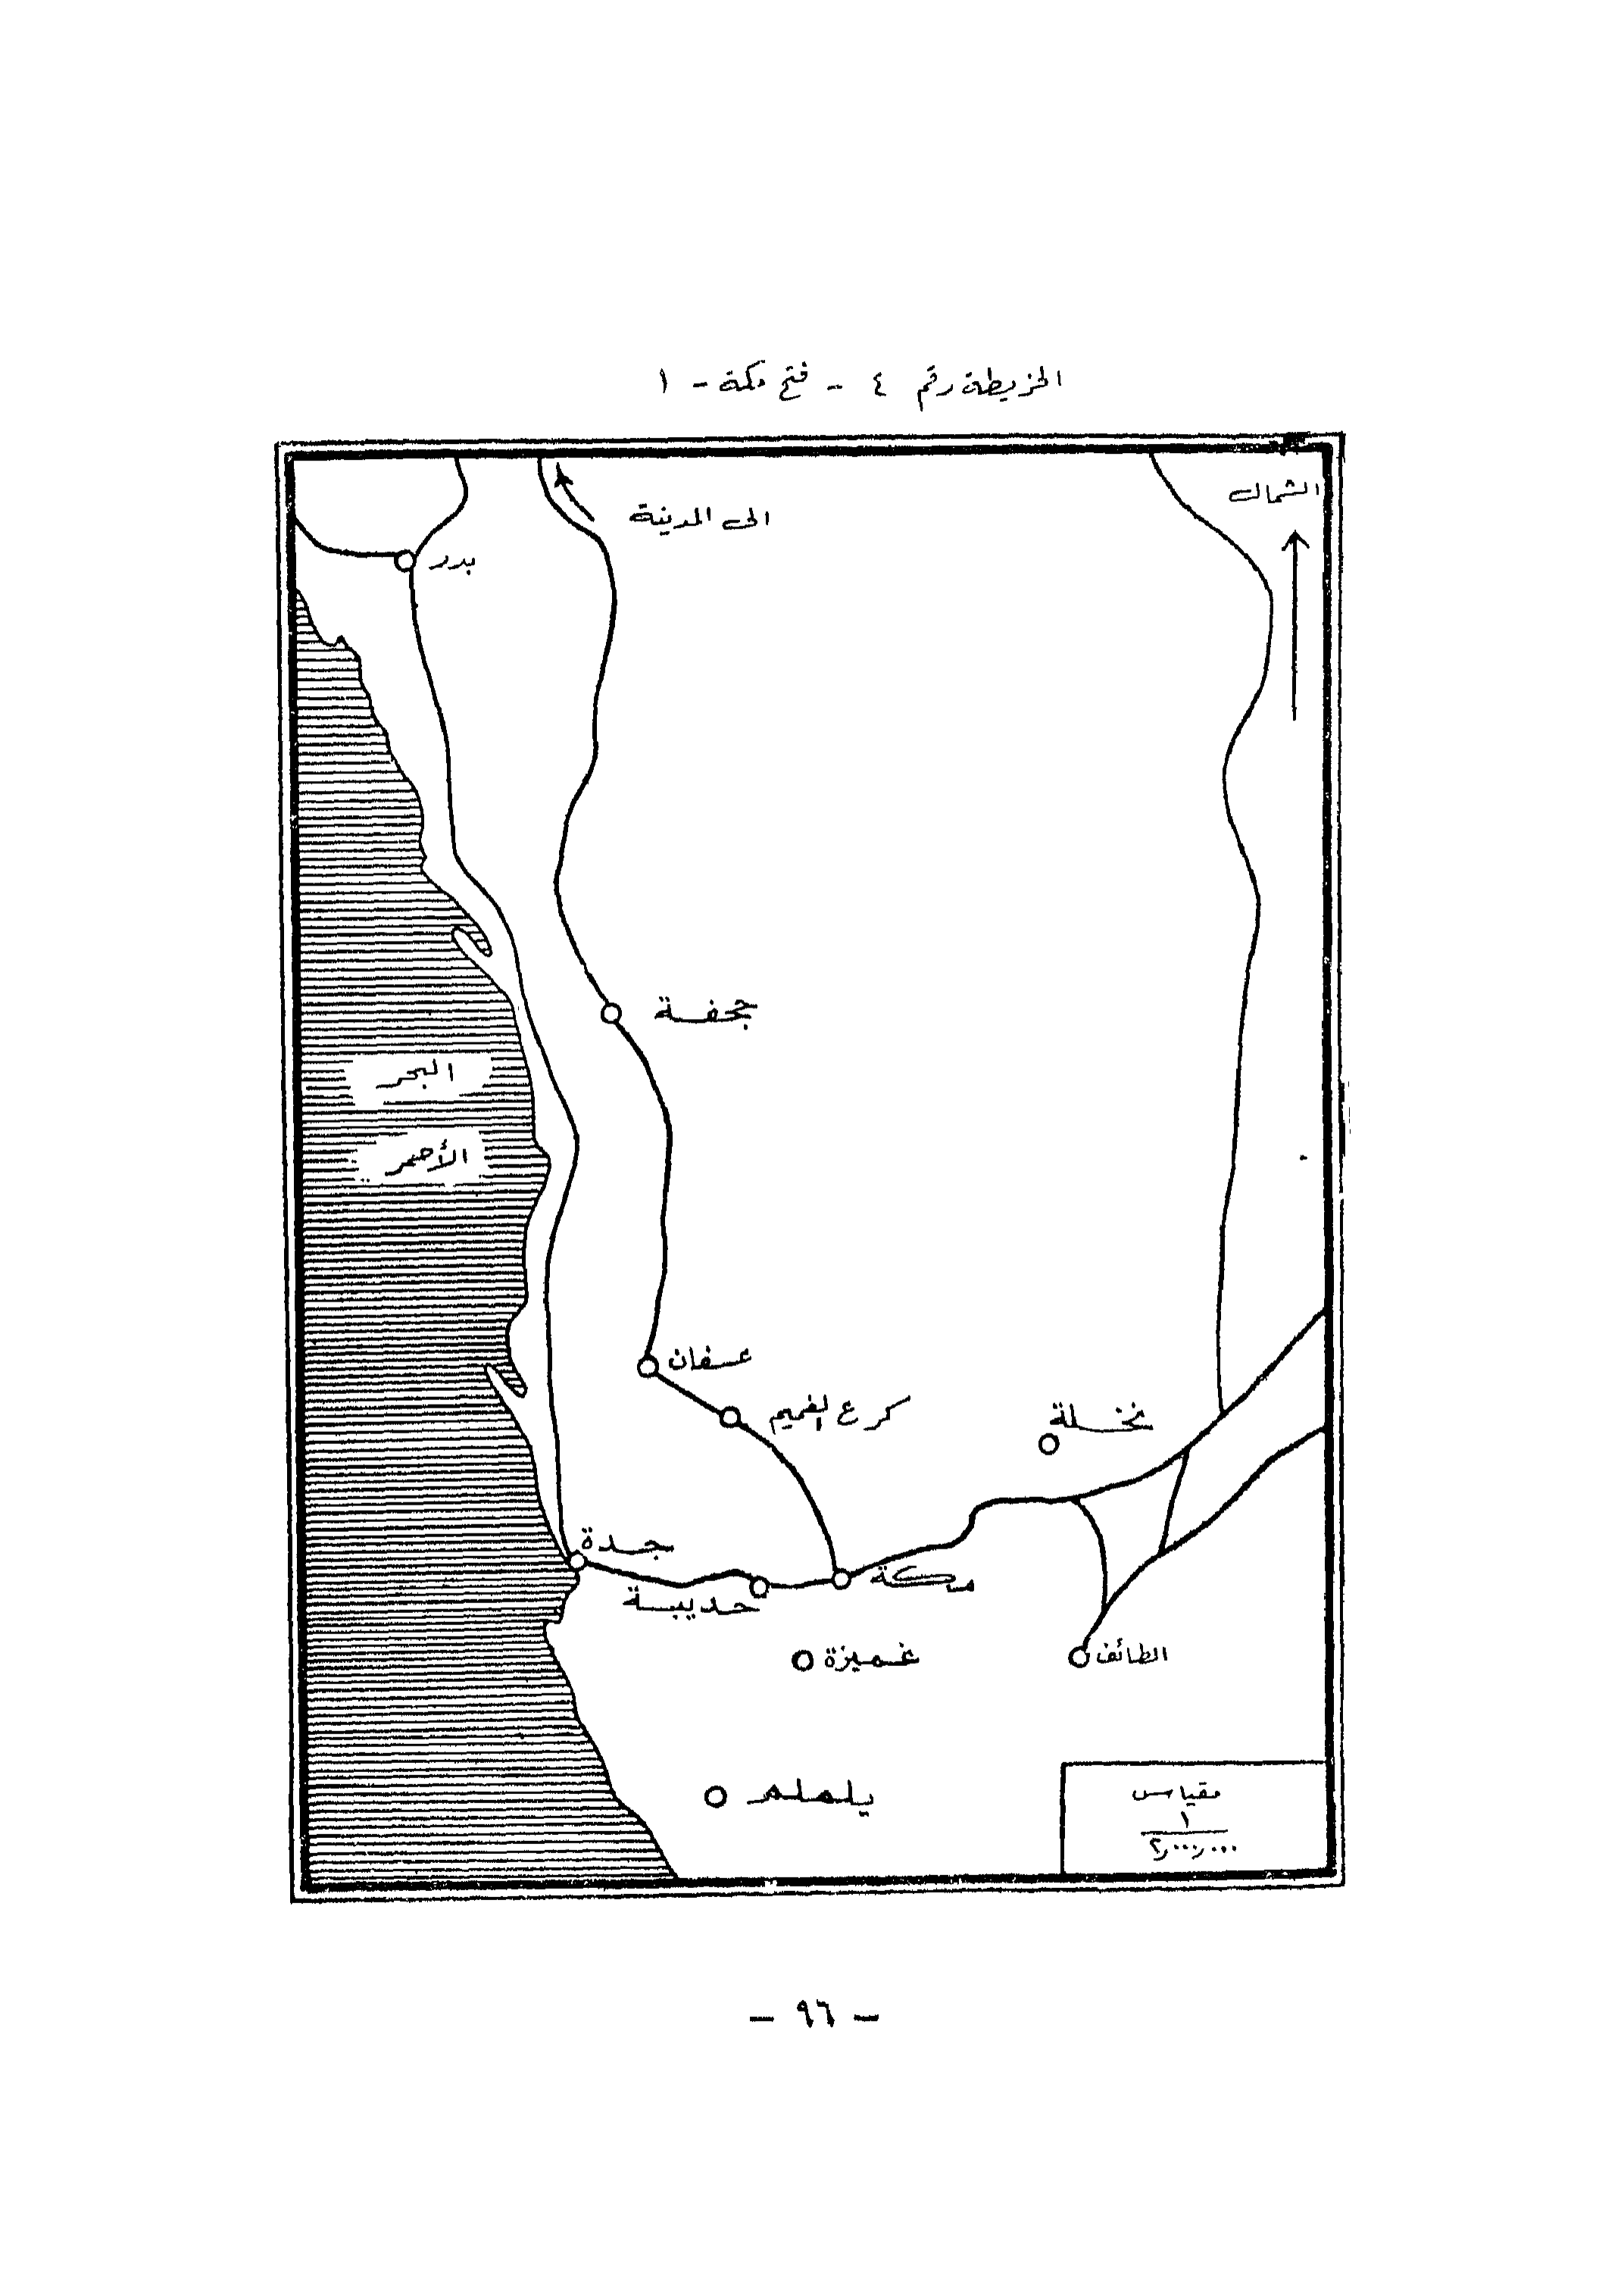 الخريطة رقم ٤ - فتح مكة - ١
الشمال
الى المدينة
بدر
جحفة
البحر
الأحمر
عسفان
كرع الغميم
نخلة
جدة
مكة
حديبية
غميزة
الطائف
يلملم
مقياس
١
٢٫٠٠٠٫٠٠٠
- ٩٦ -